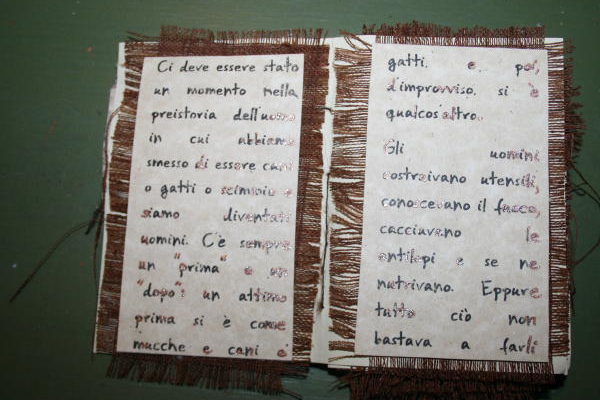 Ci deve essere stato
un momento nella
preistoria dell'uomo
in cui abbiamo
smesso di essere cani
o gatti o scimmie e
siamo diventati
uomini. C'è sempre
un "prima" e un
"dopo": un attimo
prima si è come
mucche e cani e
gatti e poi,
d'improvviso, si è
qualcos'altro.
Gli uomini
costruivano utensili,
conoscevano il fuoco,
cacciavano le
antilopi e se ne
nutrivano. Eppure
tutto ciò non
bastava a farli